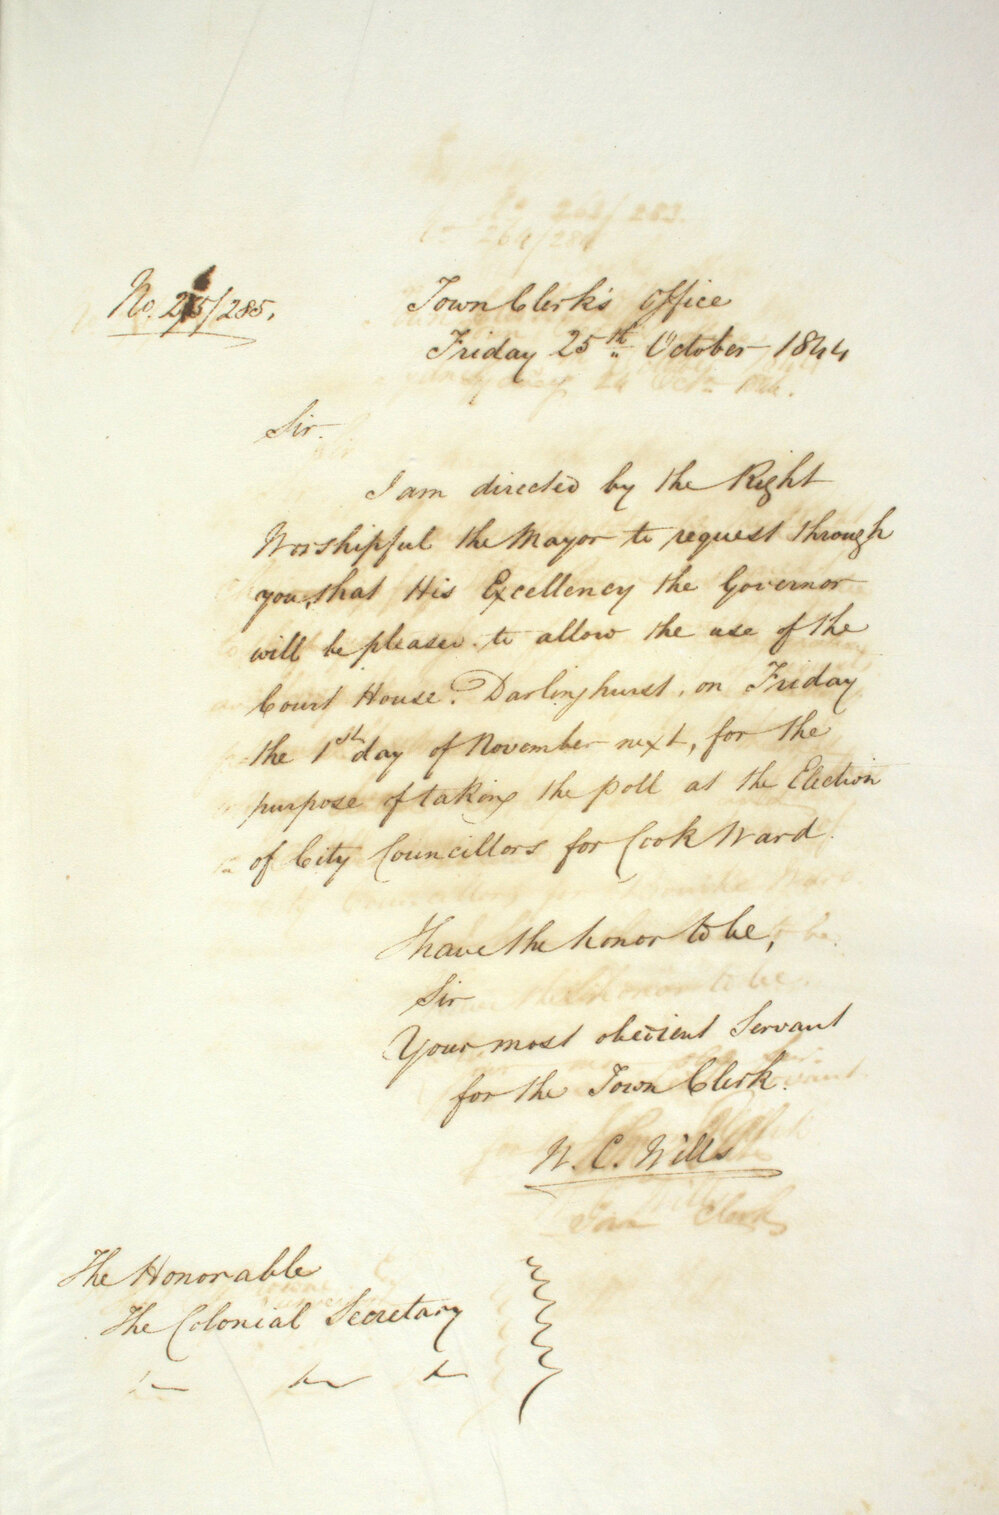 No. 265/285.
Town Clerk's Office
Friday 25th October 1844
Sir
I am directed by the Right
Worshipful the Mayor to request through
you, that His Excellency the Governor
will be pleased to allow the use of the
Court House, Darlinghurst, on Friday
the 1st day of November next, for the
purpose of taking the poll at the Election
of City Councillors for Cook Ward.
I have the honor to be,
Sir
Your most obedient Servant
for the Town Clerk.
W. C. Wills
The Honorable
The Colonial Secretary